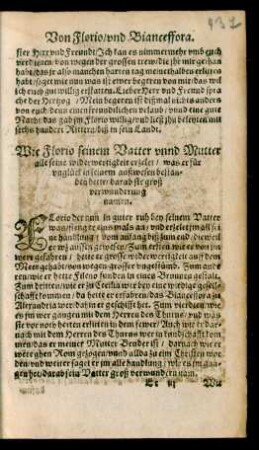 Von Florio/vnd Bianceffora.
ster Herr vnd Freundt/Ich kan es nimmermehr vmb euch
verdienen/von wegen der grossen trew/die jhr mir gethan
habt/das jr also manchen harten tag meinethalben erlitten
habt/saget mir nun was ist ewer begeren von mir/das wil
ich euch gut willig erstatten. Lieber Herr vnd Freund sprache
der Hertzog/Mein begeren ist dißmal nichts anders
von euch denn einen freundtlichen vrlaub/vnnd eine gute
Nacht/das gab jm Florio williglich vnd ließ jhn beleyten mit
sechs hundert Rittern/biß in sein Landt.
Wie Florio seinem Vatter vnnd Mutter
alle seine widerwertigkeit erzelet/was er für
vnglück in seinem außwesen bestanden
hette/darab sie groß
verwunderung
namen.
Florio der nun in guter ruh bey seinem Vatter
was/fieng er eins mals an/vnd erzelet jm all seine
handlung/vom anfang biß zum end/
wie es jm von jm were
gefahren/hette er grosse widerwertigkeit auff dem
Meer gehabt/von wegen grosser vngestümb. Zum andern
wie er hette Fileno funden in einen Brounen gestalt.
Zum dritten/wie er zu Cecilia wer bey eine wirdige gesellschafft
kommen/da hette er erfaren/das Bianceffora zu
Alexandria wer/dahin er geschifft het. Zum vierdten/wie
es jm wer gangen mit dem Herren des Thurns/vnd was
sie vor noth hetten erlitten in dem fewer/Auch wie er darnach
mit dem Herren des Thurns wer in kundtschafft kommen/
das er meiner Mutter Bruder ist/darnach wie er
were ghen Rom gezogen/vnnd allda zu eim Christen worden/
vnd weiter saget er jm alle handlung/wie es jm gangen
het/darab sein Vatter groß verwundern nam.
Wie